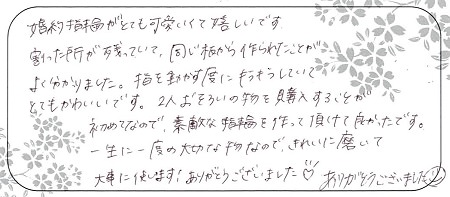 婚約指輪がとても可愛いくて嬉しいです。
割った所が残っていて、同じ柄から作られたことが
よく分かりました。指を動かす度にキラキラしていて
とてもかわいいです。2人おそろいの物を購入することが
初めてなので、素敵な指輪を作って頂けて良かったです。
一生に一度の大切な物なので、きれいに磨いて
大事に使います!ありがとうございました♡ ありがとうございました